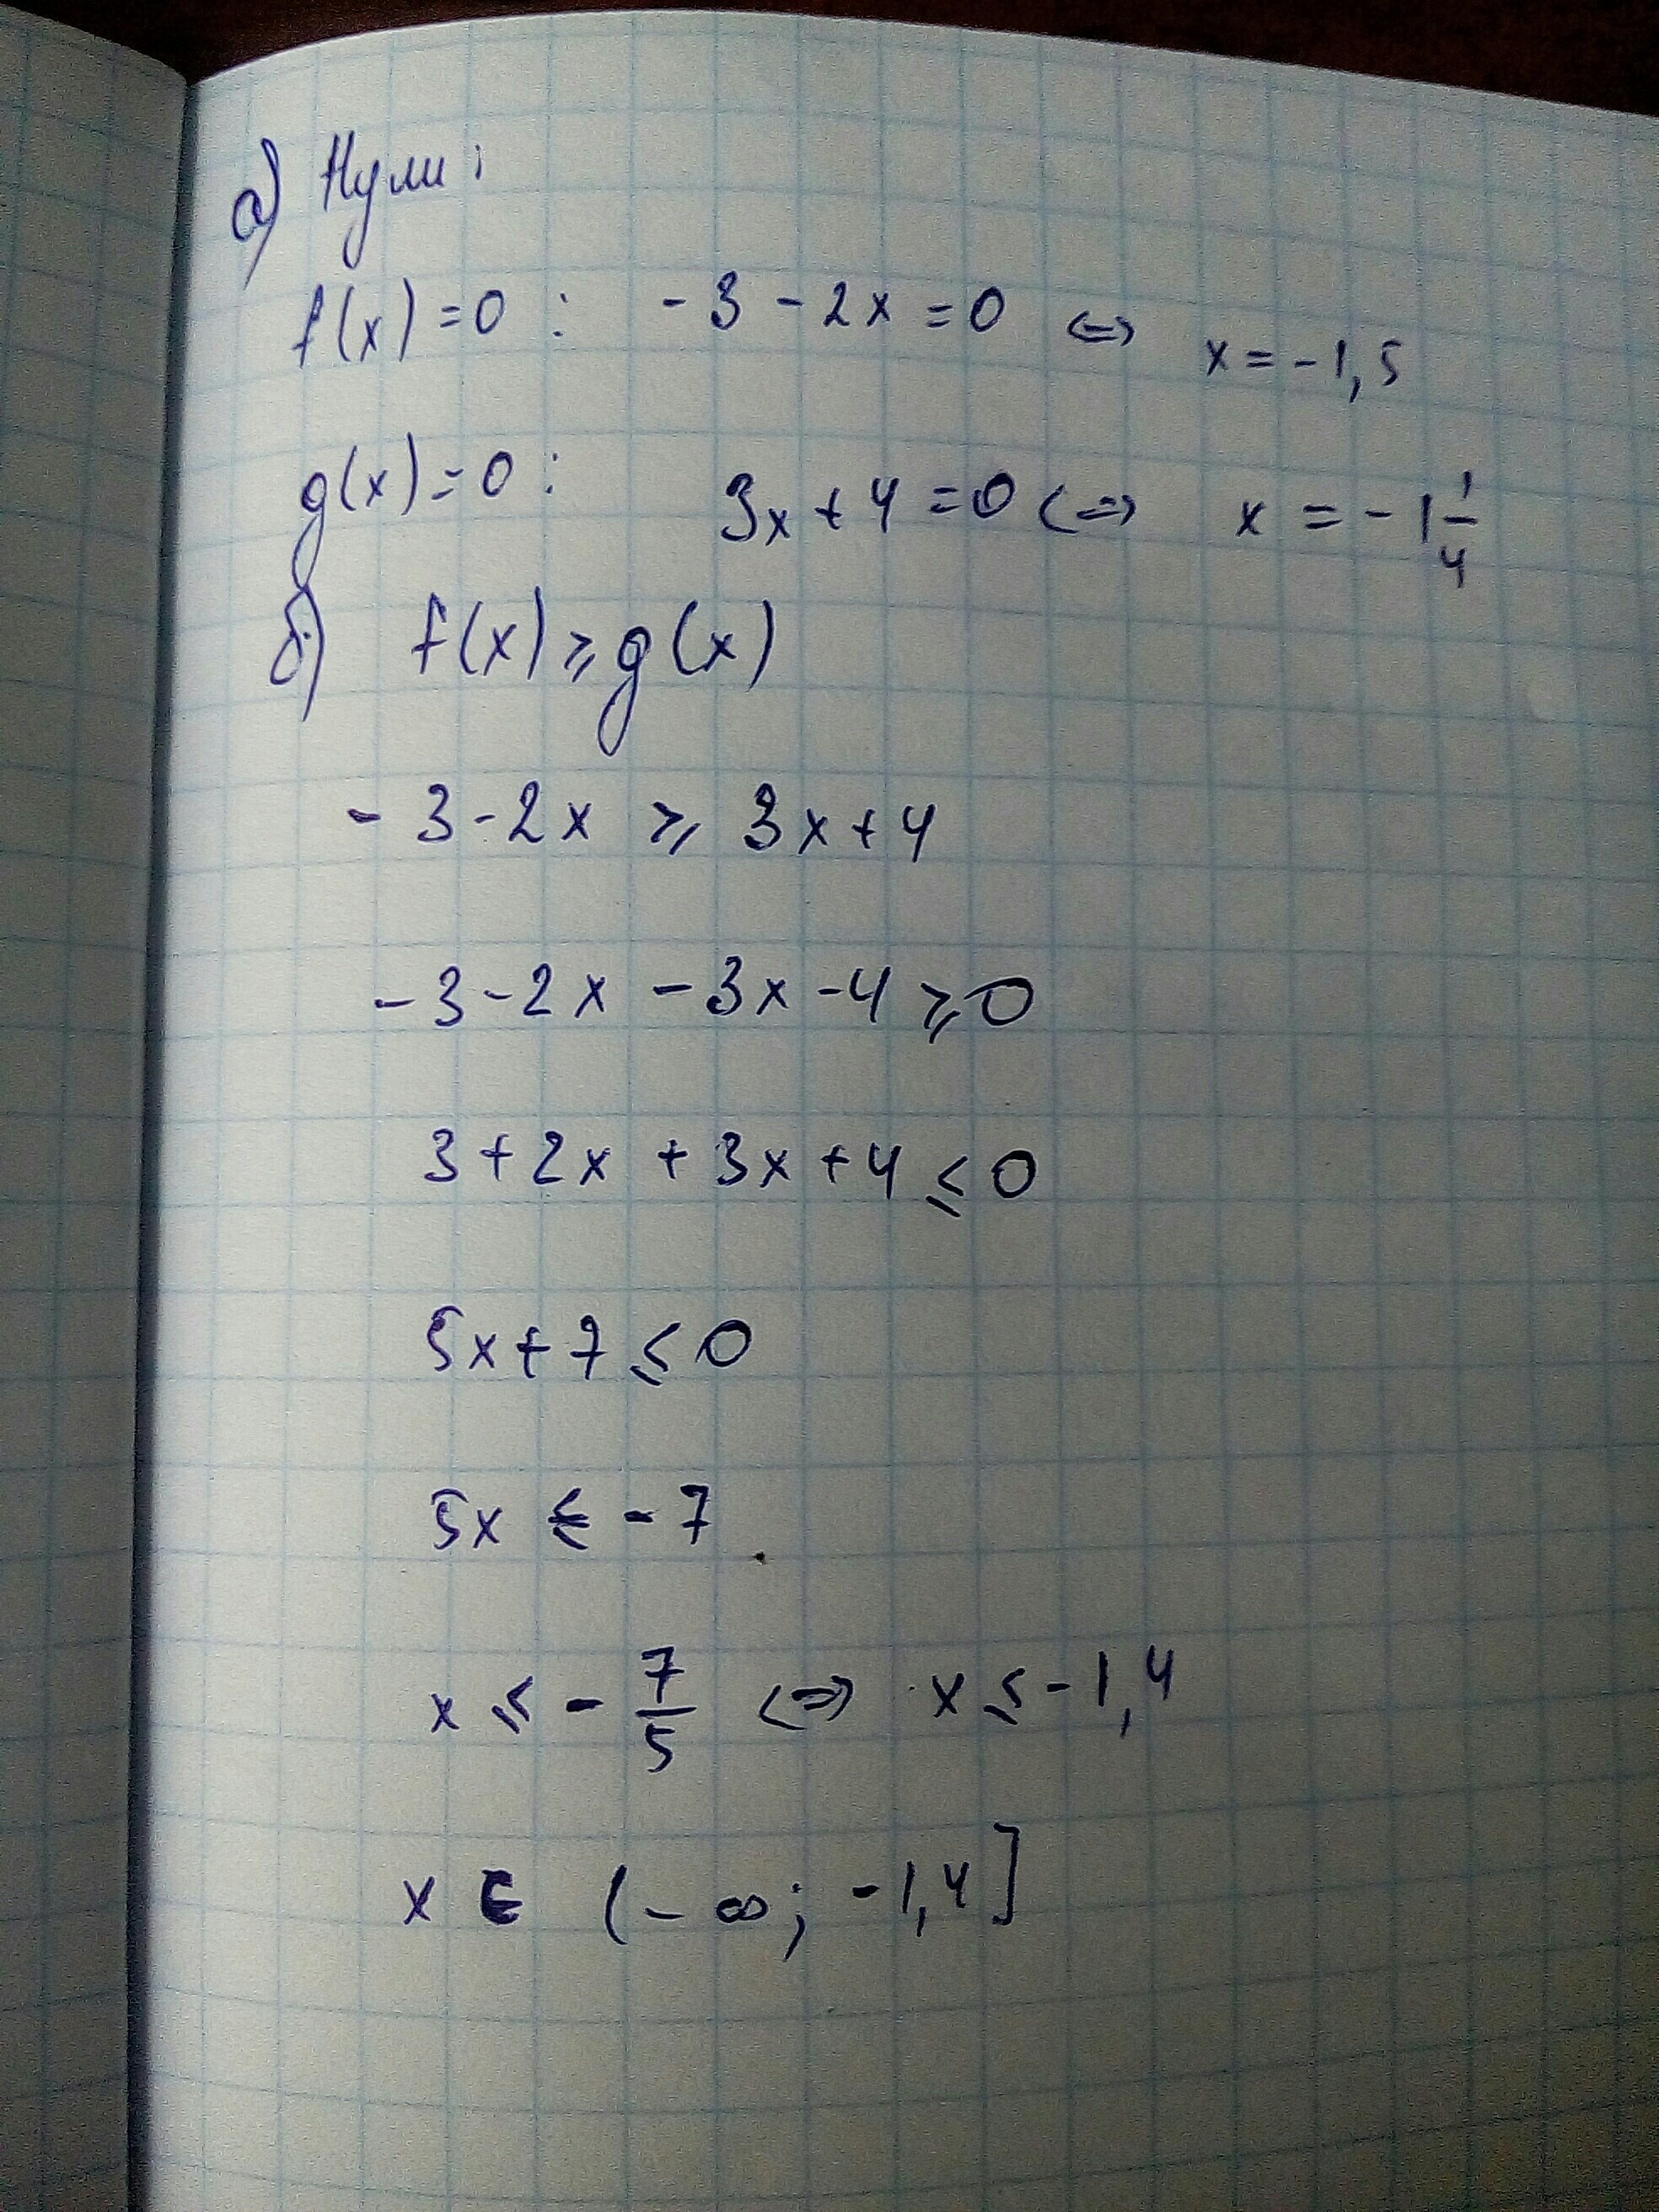 а) Нули:
f(x)=0 : -3-2x=0 <=> x=-1,5
g(x)=0: 3x+4=0 <=> x=-1 1/4
б) f(x)⩾g(x)
-3-2x ⩾ 3x+4
-3-2x-3x-4⩾0
3+2x+3x+4⩽0
5x+7⩽0
5x ⩽ -7
x ⩽ -7/5 <=> x⩽-1,4
x ∈ (-∞; -1,4]